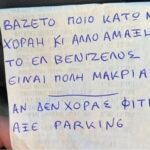 ΒΑΖΕΤΟ ΠΟΙΟ ΚΑΤΩ
ΧΟΡΑΗ ΚΙ ΑΛΛΟ ΑΜΑΞΙ
ΤΟ ΕΛ ΒΕΝΙΖΕΛΟΣ
ΕΙΝΑΙ ΠΟΛΗ ΜΑΚΡΙΑ
ΑΝ ΔΕΝ ΧΟΡΑΣ ΦΤΙ
ΑΞΕ PARKING